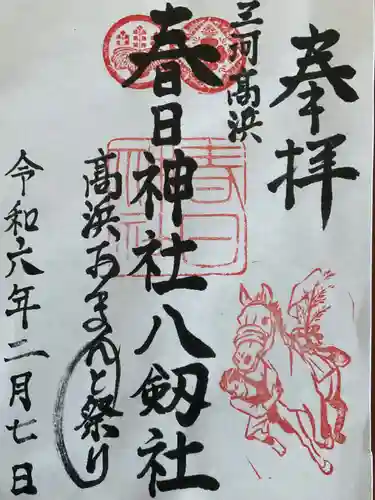 奉拝
三河高浜
春日神社八剱社
高浜おまんと祭り
令和六年二月七日
春日
神社